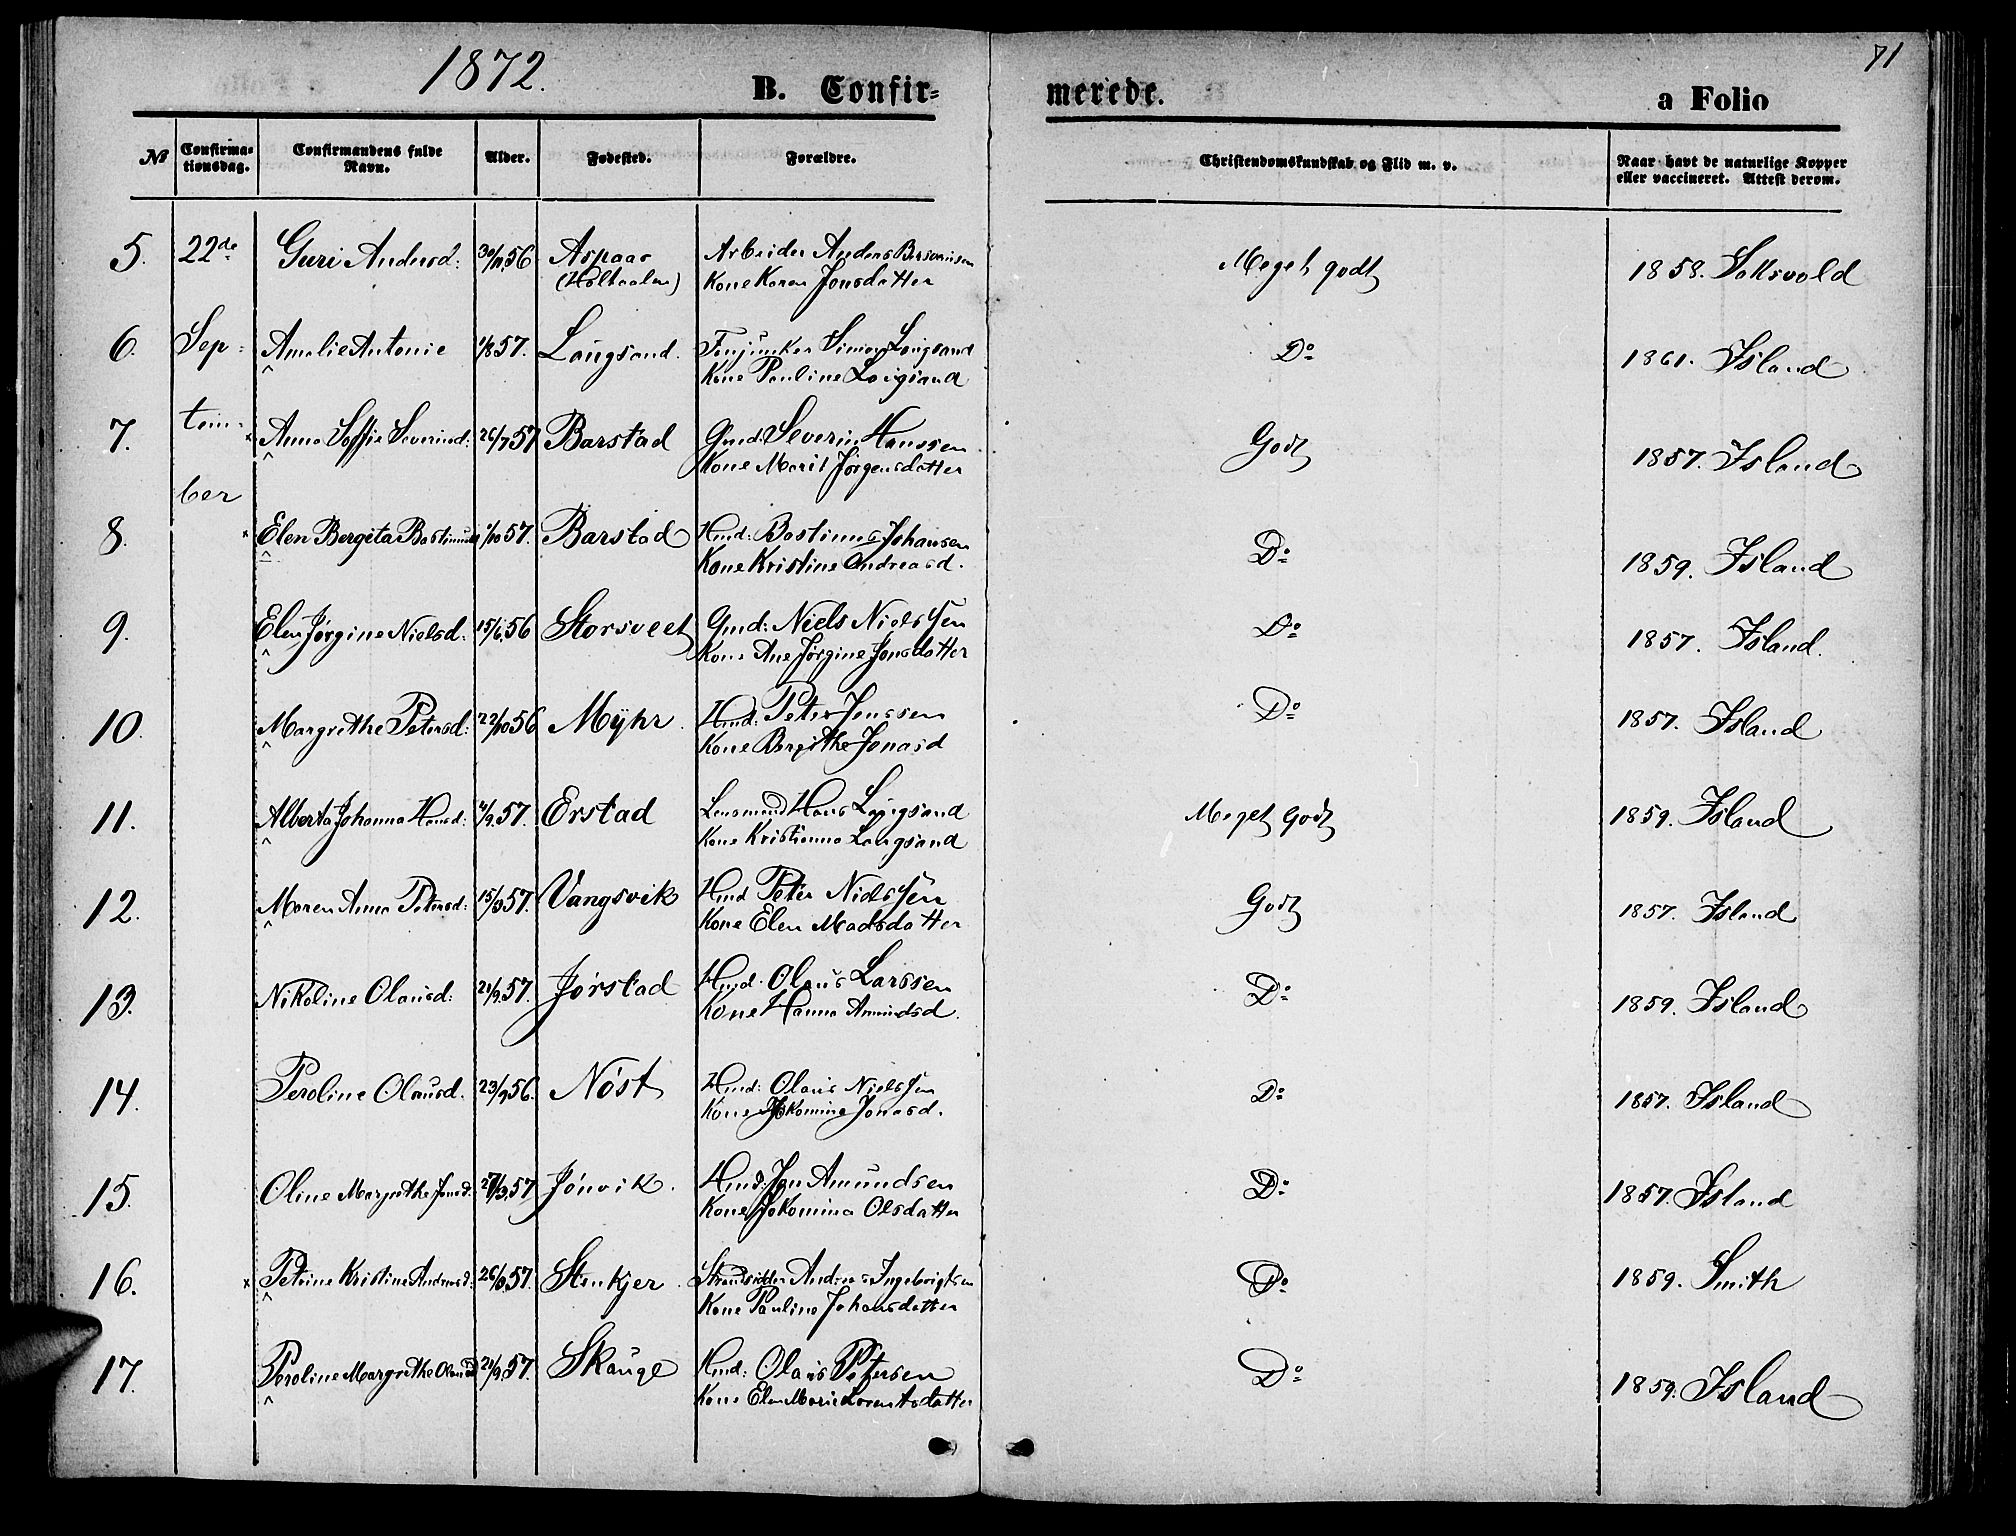 1872.
71
B. Confir-
merede.
a Folio
No
Confirma-
tionsdag.
Confirmandens fulde
Navn.
Alder.
Fødested.
Forældre.
Christendomskundskab og Flid m. v.
Naar havt de naturlige Kopper
eller vaccineret. Attest derom.
5. 22de Guri Andersd: 30/11 56 Aspaas Arbeider Anders
(Holtaalen) Kone Karen Jonsdatter
Meget godt 1858. Soksvold
6. Sep- Amalie Antonie 1/8 57. Langsand. Simon Langsand
Kone Pauline Langsand
Do 1861. Island
7. tem- Anna Soffie Severinsd: 26/7 57 Barstad Gmd: Severin Hanssen
Kone Marit Jørgensdatter
Godt 1857. Island
ber
8. Elen Bergita Bastiansd 1/10 57. Barstad Hmd: Bastinus Johansen
Kone Kristine Andreasd.
Do 1859. Island
9. Elen Jørgine Nielsd: 15/6 56 Storsveet Gmd: Niels Nielssen
Kone Ane Jørgine Jonsdatter
Do 1857. Island.
10. Margrethe Petersd: 22/10 56 Myhr. Hmd: Peter Jenssen
Kone Bergithe Jonasd
Do 1857. Island
11. Alberta Johanna Hansd: 4/9 57. Erstad Lensmand Hans Langsand
Kone Kristianna Langsand
Meget godt 1859. Island
12. Maren Anna Petersd: 15/3 57. Vangsvik Hmd Peter Nielssen
Kone Elen Madsdatter
Godt 1857. Island
13. Nikoline Olausd: 21/9 57. Jørstad Hmd. Olaus Larssen
Kone Hanna Amundsd.
Do 1859. Island
14. Peroline Olausd. 23/9 56. Nøst Hmd: Olaus Nielssen
Kone Jokomine Jonasd.
Do 1857. Island
15. Oline Margrethe Jonsd. 27/3 57 Jønvik. Hmd: Jon Amundsen
Kone Jokomina Olsdatter
Do 1857. Island
16. Petrine Kristine Andreasd: 26/8 57. Stenkjer. Strandsidder Andreas Ingebrigtsen
Kone Pauline Johansdatter
Do 1859. Smith
17. Peroline Margrethe Olausd 21/9 57. Skauge Hmd: Olaus Petersen
Kone Elen Marie Lorentsdatter
Do 1859. Island